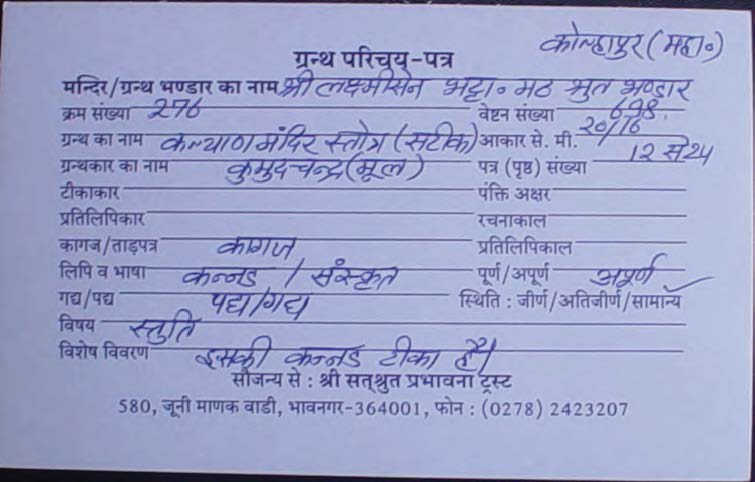 कोल्हापुर (महा०)
ग्रन्थ परिचय-पत्र
मन्दिर/ग्रन्थ भण्डार का नाम श्री लक्ष्मीसेन भट्टा० मठ श्रुत भण्डार
क्रम संख्या 276 वेष्टन संख्या 698
ग्रन्थ का नाम कल्याणमंदिर स्तोत्र (सटीक) आकार से. मी. 20/16
ग्रन्थकार का नाम कुमुदचन्द्र (मूल) पत्र (पृष्ठ) संख्या 12 से 24
टीकाकार पंक्ति अक्षर
प्रतिलिपिकार रचनाकाल
कागज/ताड़पत्र कागज प्रतिलिपिकाल
लिपि व भाषा कन्नड / संस्कृत पूर्ण/अपूर्ण अपूर्ण
गद्य/पद्य पद्य/गद्य स्थिति : जीर्ण/अतिजीर्ण/सामान्य ✓
विषय स्तुति
विशेष विवरण इसकी कन्नड टीका है।
सौजन्य से : श्री सत्श्रुत प्रभावना ट्रस्ट
580, जूनी माणक वाडी, भावनगर-364001, फोन : (0278) 2423207